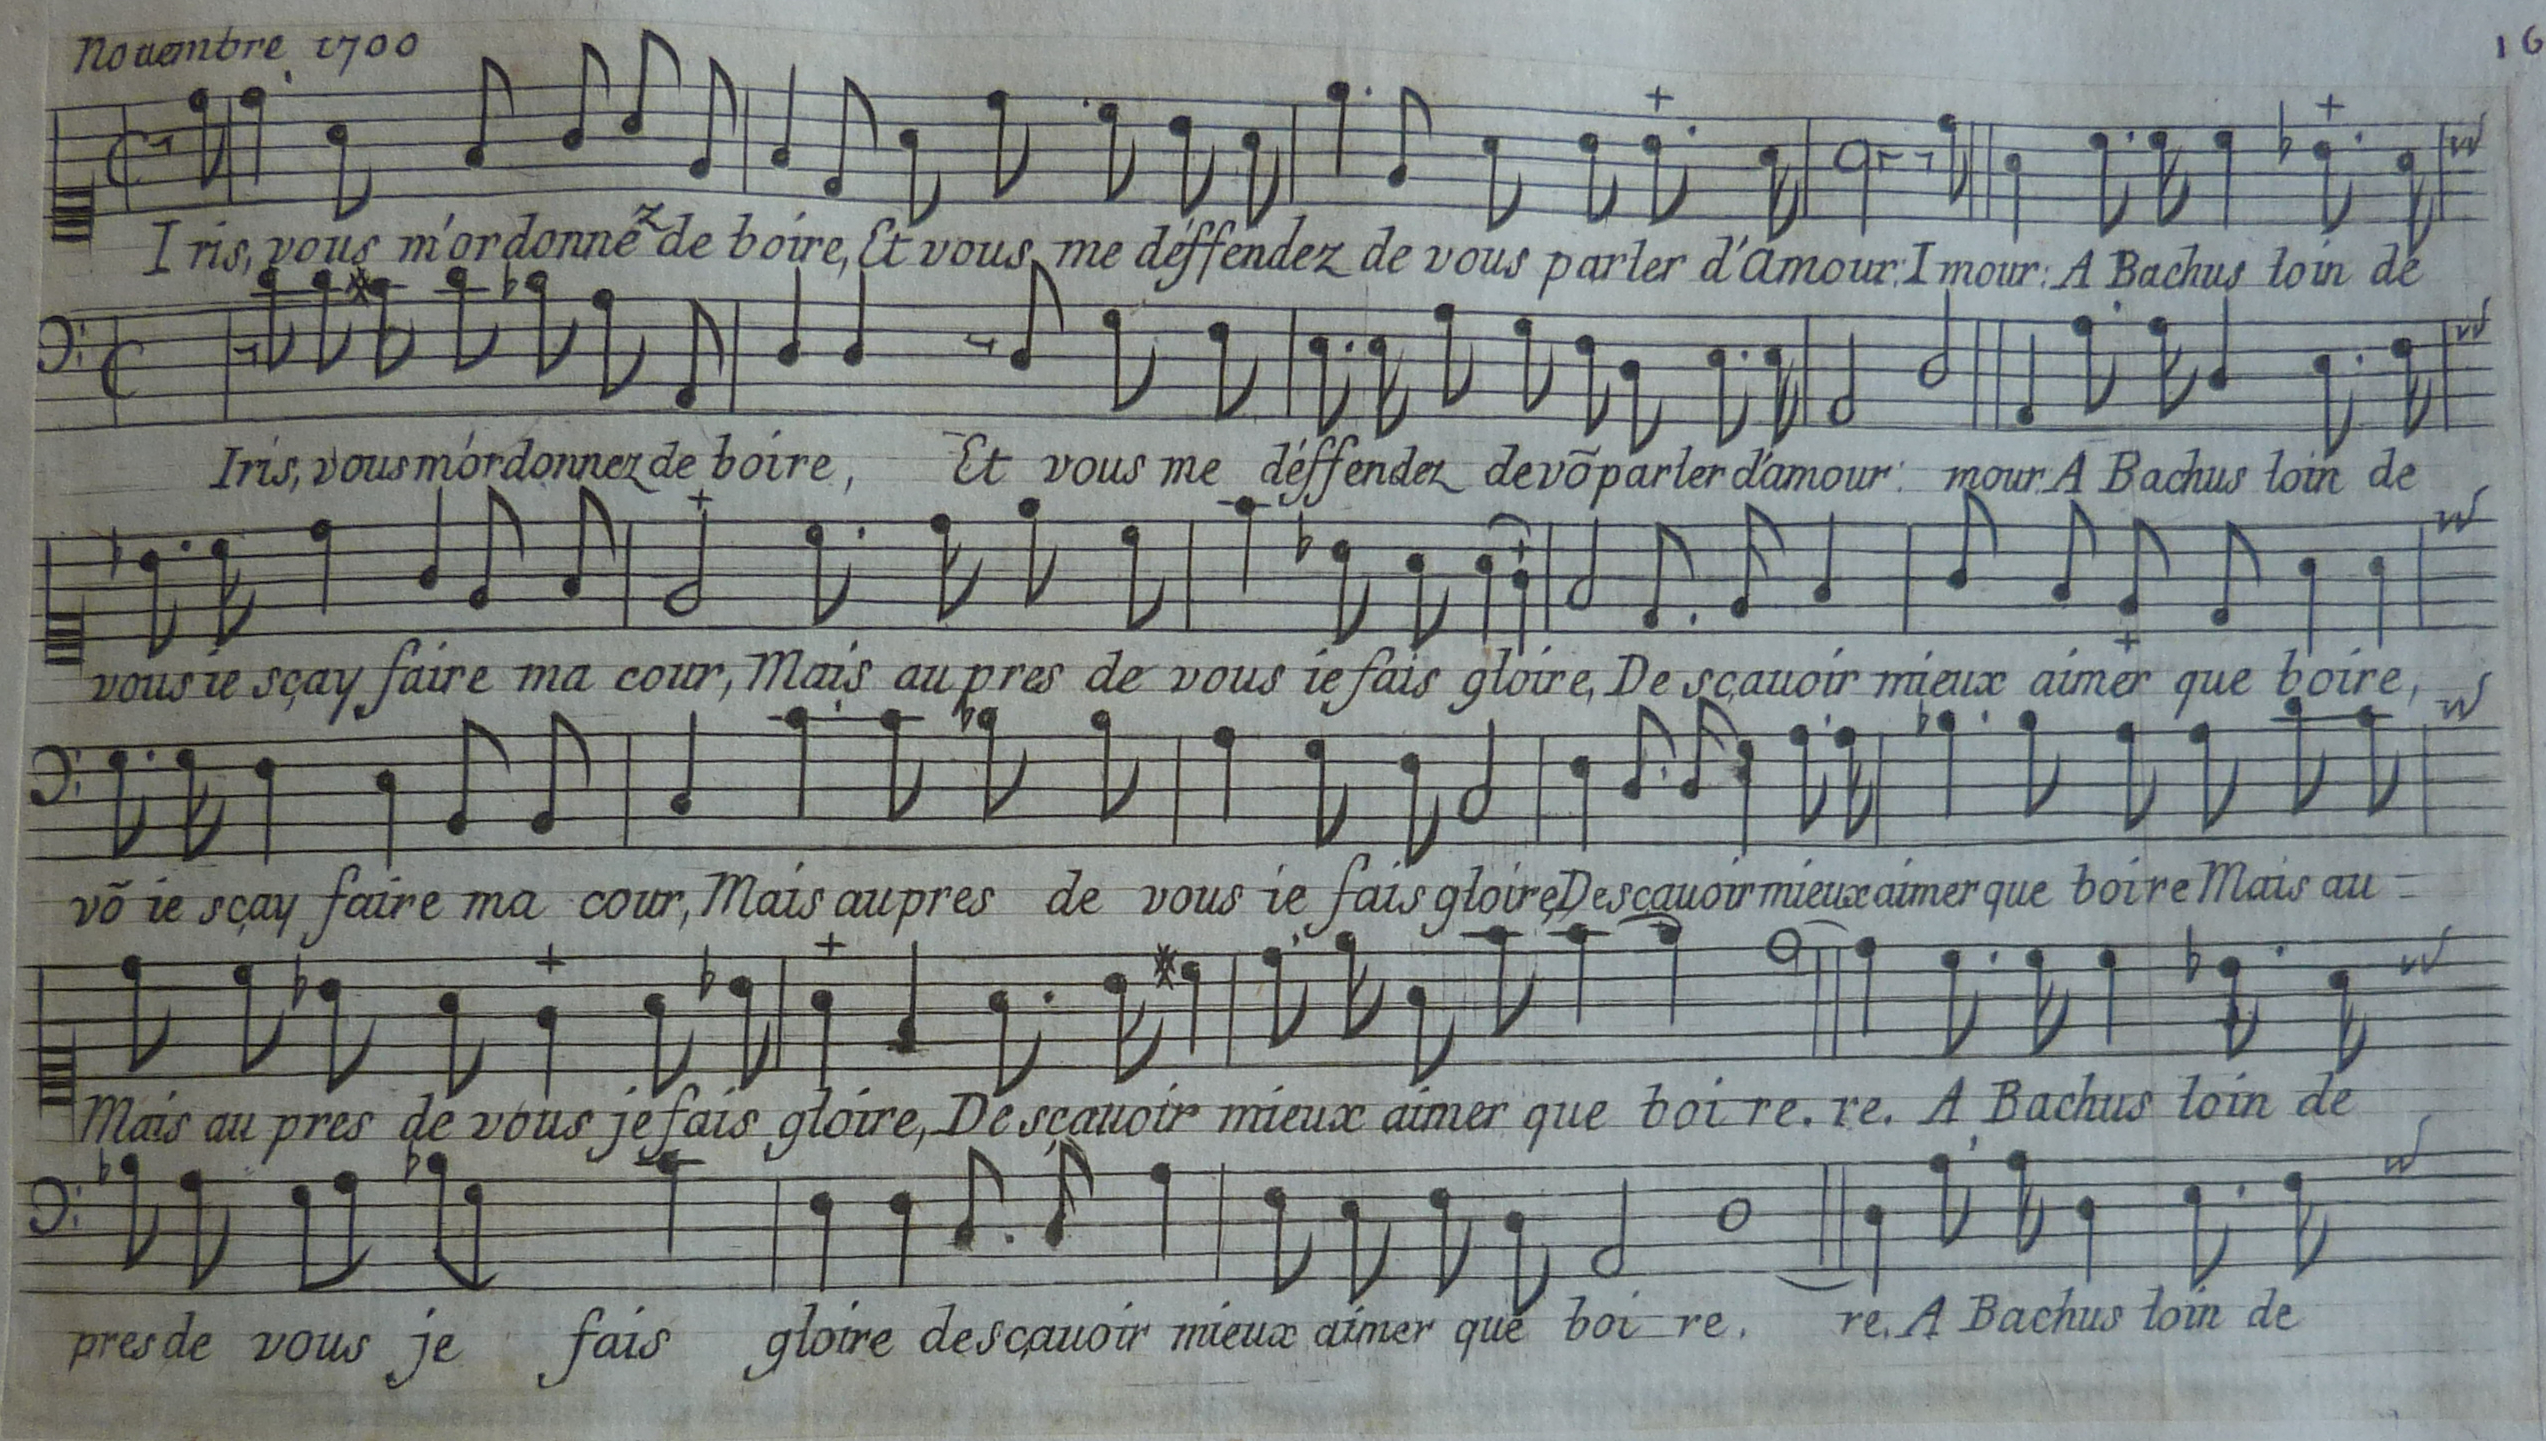 Nouembre 1700
16
Iris, vous m'ordonnez de boire, Et vous me déffendez de vous parler d'amour: I mour: A Bachus loin de
Iris, vous m'ordonnez de boire, Et vous me déffendez de võ parler d'amour: mour. A Bachus loin de
vous ie sçay faire ma cour, Mais au pres de vous ie fais gloire, De sçauoir mieux aimer que boire,
võ ie sçay faire ma cour, Mais au pres de vous ie fais gloire, De sçauoir mieux aimer que boire Mais au-
Mais au pres de vous je fais gloire, De sçauoir mieux aimer que boi re. re. A Bachus loin de
pres de vous je fais gloire de sçauoir mieux aimer que boi re. re. A Bachus loin de